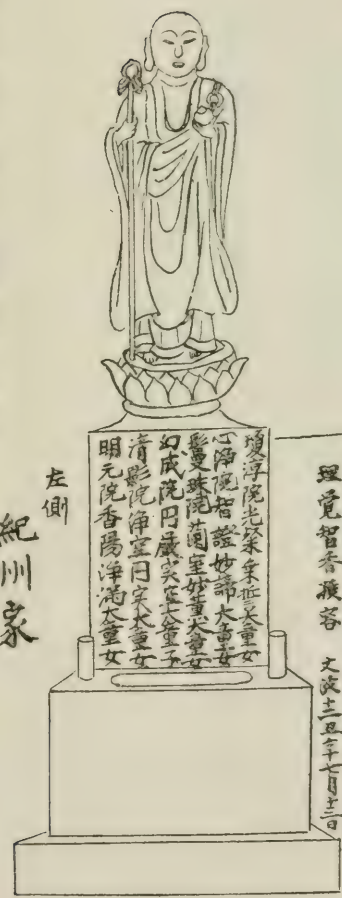 理覚智香 文政十二丑年七月十二日
瓊淳院光栄 大童女
心浄院智證妙諦大童女
鬘珠院蘭室妙薫大童女
幻成院円巌 大童子
清影院浄室円 大童女
明元院香陽浄満大童女
左側
紀州家